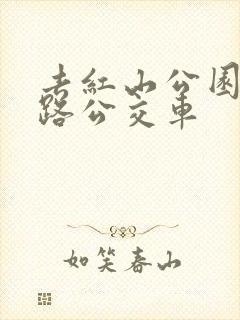 去红山公园
路公交车
如笑春山